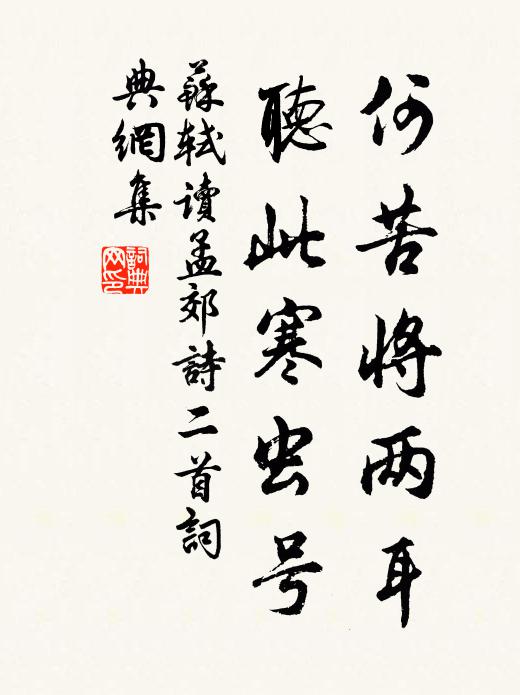 何苦将两耳
聽此寒虫号
蘇軾讀孟郊詩二首詞
典網集
詞典網印